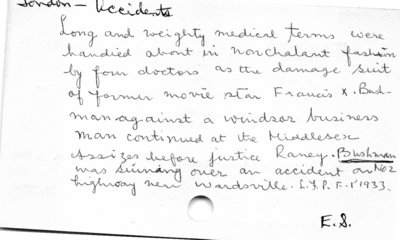 London - Accidents
Long and weighty medical terms were
handied about in nonchalant fashion
by four doctors as the damage suit
of former movie star Francis X. Bush-
man against a windsor business
man continued at the Middlesex
Assizes before justice Raney. Bushman
was suing over an accident on No2
highway near Wardsville. L.F.P. F.1 1933.
E.S.